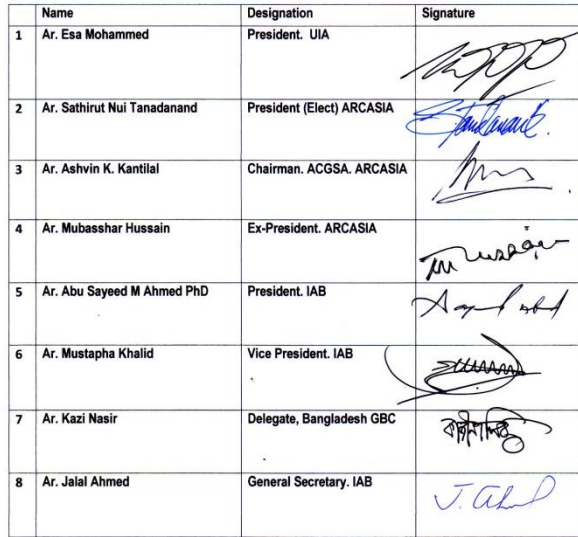 Name Designation Signature
1 Ar. Esa Mohammed President. UIA
2 Ar. Sathirut Nui Tanadanand President (Elect) ARCASIA Tandanand.
3 Ar. Ashvin K. Kantilal Chairman. ACGSA. ARCASIA
4 Ar. Mubasshar Hussain Ex-President. ARCASIA
5 Ar. Abu Sayeed M Ahmed PhD President. IAB
6 Ar. Mustapha Khalid Vice President. IAB
7 Ar. Kazi Nasir Delegate, Bangladesh GBC
8 Ar. Jalal Ahmed General Secretary. IAB J. Ahmed